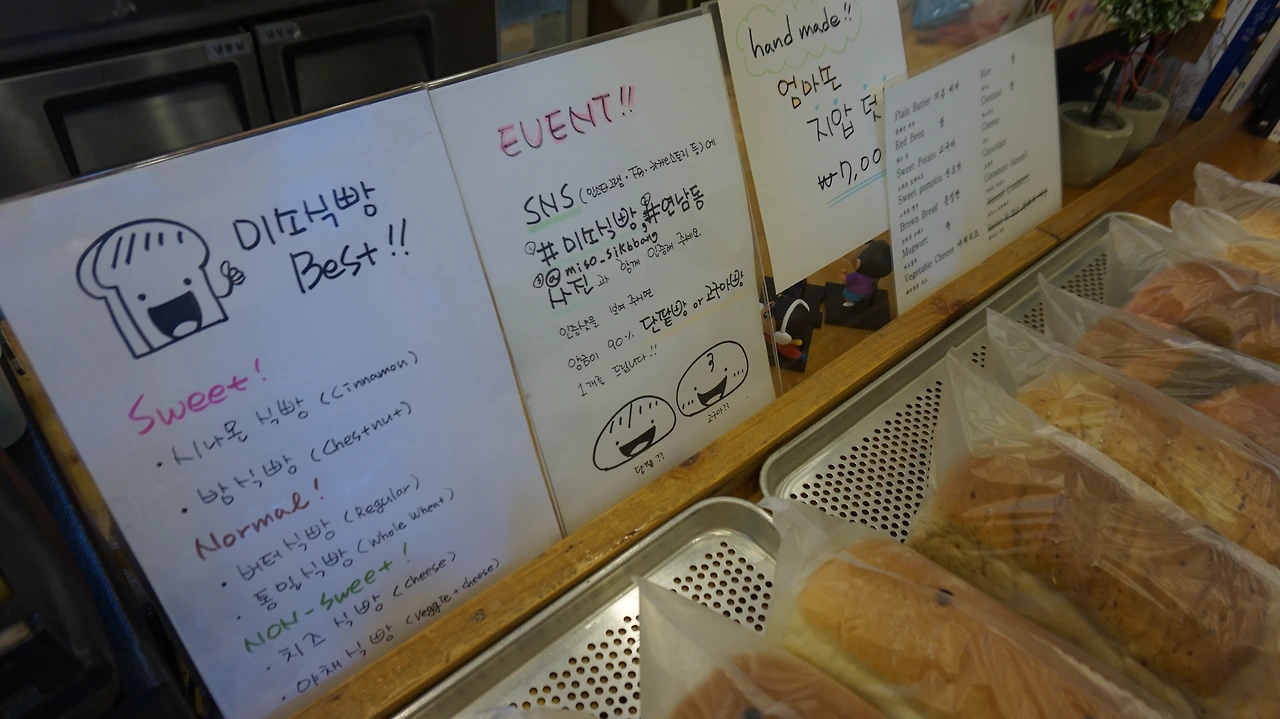 미쏘식빵
Best!!
Sweet!
· 시나몬 식빵 (Cinnamon)
· 밤식빵 (Chestnut)
Normal!
· 버터식빵 (Regular)
· 통밀식빵 (Whole Wheat)
NON-Sweet!
· 치즈 식빵 (Cheese)
· 야채식빵 (Veggie + cheese)
EVENT!!
SNS (인스타그램·
#미쏘식빵 #연남동
@miso_sikbbang
사진과 함께 인증해 주세요.
인증샷을 보여 주시면
앙꼬미 90% 단팥빵 or 고구마빵
1개를 드립니다!!
단팥??
고구마??
hand made!!
엄마손
지압
₩7,00
Plain Butter
Red Bean 빵
Sweet Potato 고구마
Sweet pumpkin 단호박
Brown Bread
Mugwort 쑥
Vegetable Cheese
Rice
Chestnut
Cheese
Chocolate
Cinnamon